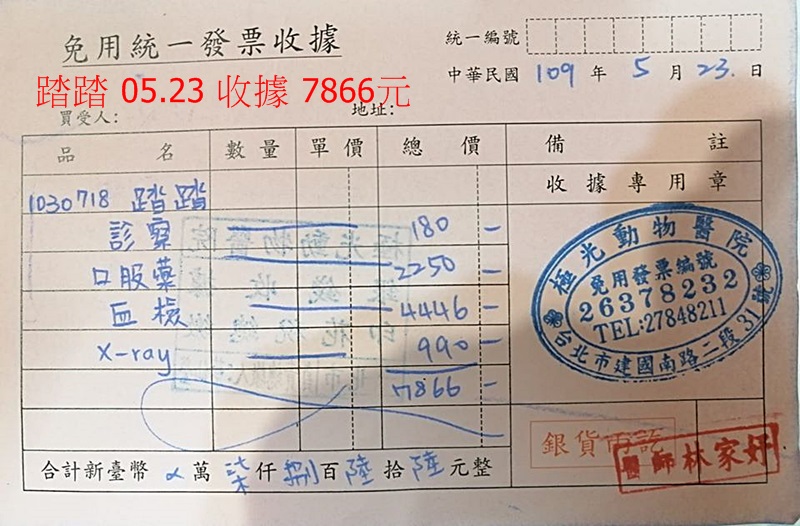 免用統一發票收據
統一編號
中華民國 109 年 5 月 23. 日
踏踏 05.23 收據 7866元
買受人： 地址：
品名 數量 單價 總價 備註
收據專用章
1030718 踏踏
診察 180 -
口服藥 2250 -
血檢 4446 -
X-ray 990 -
7866 -
極光動物醫院
免用發票編號
26378232
TEL:27848211
台北市建國南路二段31號
銀貨両訖
醫師林家妤
合計新臺幣 萬 柒 仟 捌 百 陸 拾 陸 元整